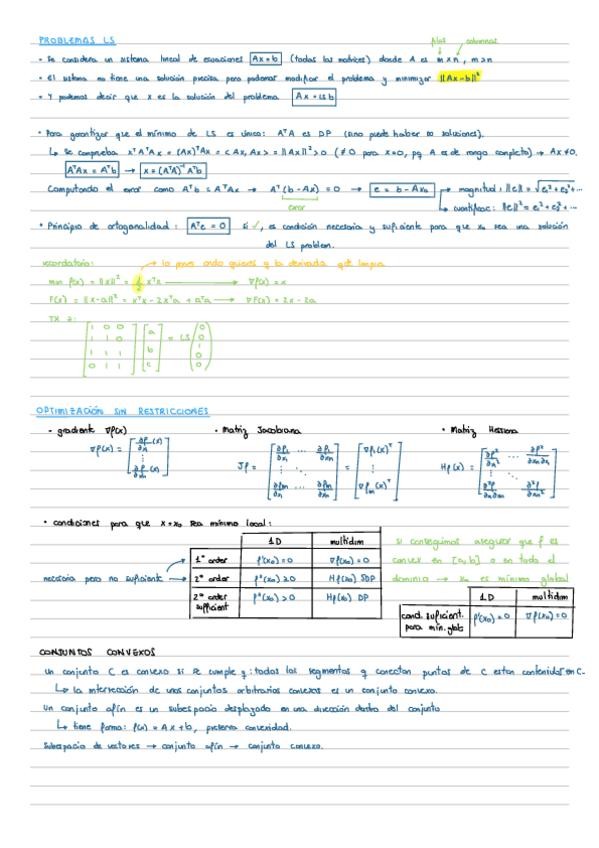 PROBLEMAS LS
filas columnas
• Se considera un sistema lineal de ecuaciones Ax=b (todas las matrices) donde A es m×n, m≥n
• El sistema no tiene una solución precisa pero podemos modificar el problema y minimizar ||Ax-b||²
• Y podemos decir que x es la solución del problema Ax =LS b
• Para garantizar que el mínimo de LS es único: AᵀA es DP (sino puede haber ∞ soluciones).
↳ Se comprueba xᵀAᵀAx = (Ax)ᵀAx = <Ax, Ax> = ||Ax||² > 0 (≠0 para x=0, pq A es de rango completo) → Ax ≠ 0.
AᵀAx = Aᵀb → x = (AᵀA)⁻¹Aᵀb
Computando el error como Aᵀb = AᵀAx → Aᵀ(b-Ax) = 0 → e = b - Ax₀ → magnitud: ||e|| = √e₁²+e₂²+...
error ↳ cuantificar: ||e||² = e₁²+e₂²+...
• Principio de ortogonalidad: Aᵀe = 0 si ✓, es condición necesaria y suficiente para que x₀ sea una solución
del LS problem.
recordatorio: → lo pones cndo quieres y la derivada qde limpia
min f(x) = ||x||² = ½ xᵀx → ∇f(x) = x
F(x) = ||x-a||² = xᵀx - 2xᵀa + aᵀa → ∇F(x) = 2x - 2a
[1 0 0; 1 1 0; 1 1 1; 0 1 1] [a b c] = LS (0 0 1 0 0)
OPTIMIZACIÓN SIN RESTRICCIONES
• gradiente ∇f(x) • Matriz Jacobiana • Matriz Hessiana
∇f(x) = [∂f/∂x₁(x) ⋮ ∂f/∂xₙ(x)] Jf = [∂f₁/∂x₁ ... ∂f₁/∂xₙ ⋮ ∂fₘ/∂x₁ ... ∂fₘ/∂xₙ] = [∇f₁(x)ᵀ ⋮ ∇fₘ(x)ᵀ] Hf(x) = [∂f²/∂x₁² ... ∂f²/∂x₁∂xₙ ⋮ ∂²f/∂xₙ∂x₁ ∂²f/∂xₙ²]
• condiciones para que x=x₀ sea mínimo local:
1D multidim
1º orden f'(x₀)=0 ∇f(x₀)=0
necesaria pero no suficiente 2º orden f''(x₀)≥0 Hf(x₀) SDP
2º orden suficient f''(x₀)>0 Hf(x₀) DP
si conseguimos asegurar que f es
convex en [a,b] o en todo el
dominio → x₀ es mínimo global
1D multidim
cond. suficient. para min. glob f'(x₀)=0 ∇f(x₀)=0
CONJUNTOS CONVEXOS
Un conjunto C es convexo si se cumple q: todos los segmentos q conectan puntos de C estan contenidos en C.
↳ la intersección de unos conjuntos arbitrarios convexos es un conjunto convexo.
Un conjunto afín es un subespacio desplazado en una dirección dentro del conjunto
↳ tiene forma: f(x) = Ax + b, preserva convexidad.
Subespacio de vectores → conjunto afín → conjunto convexo.